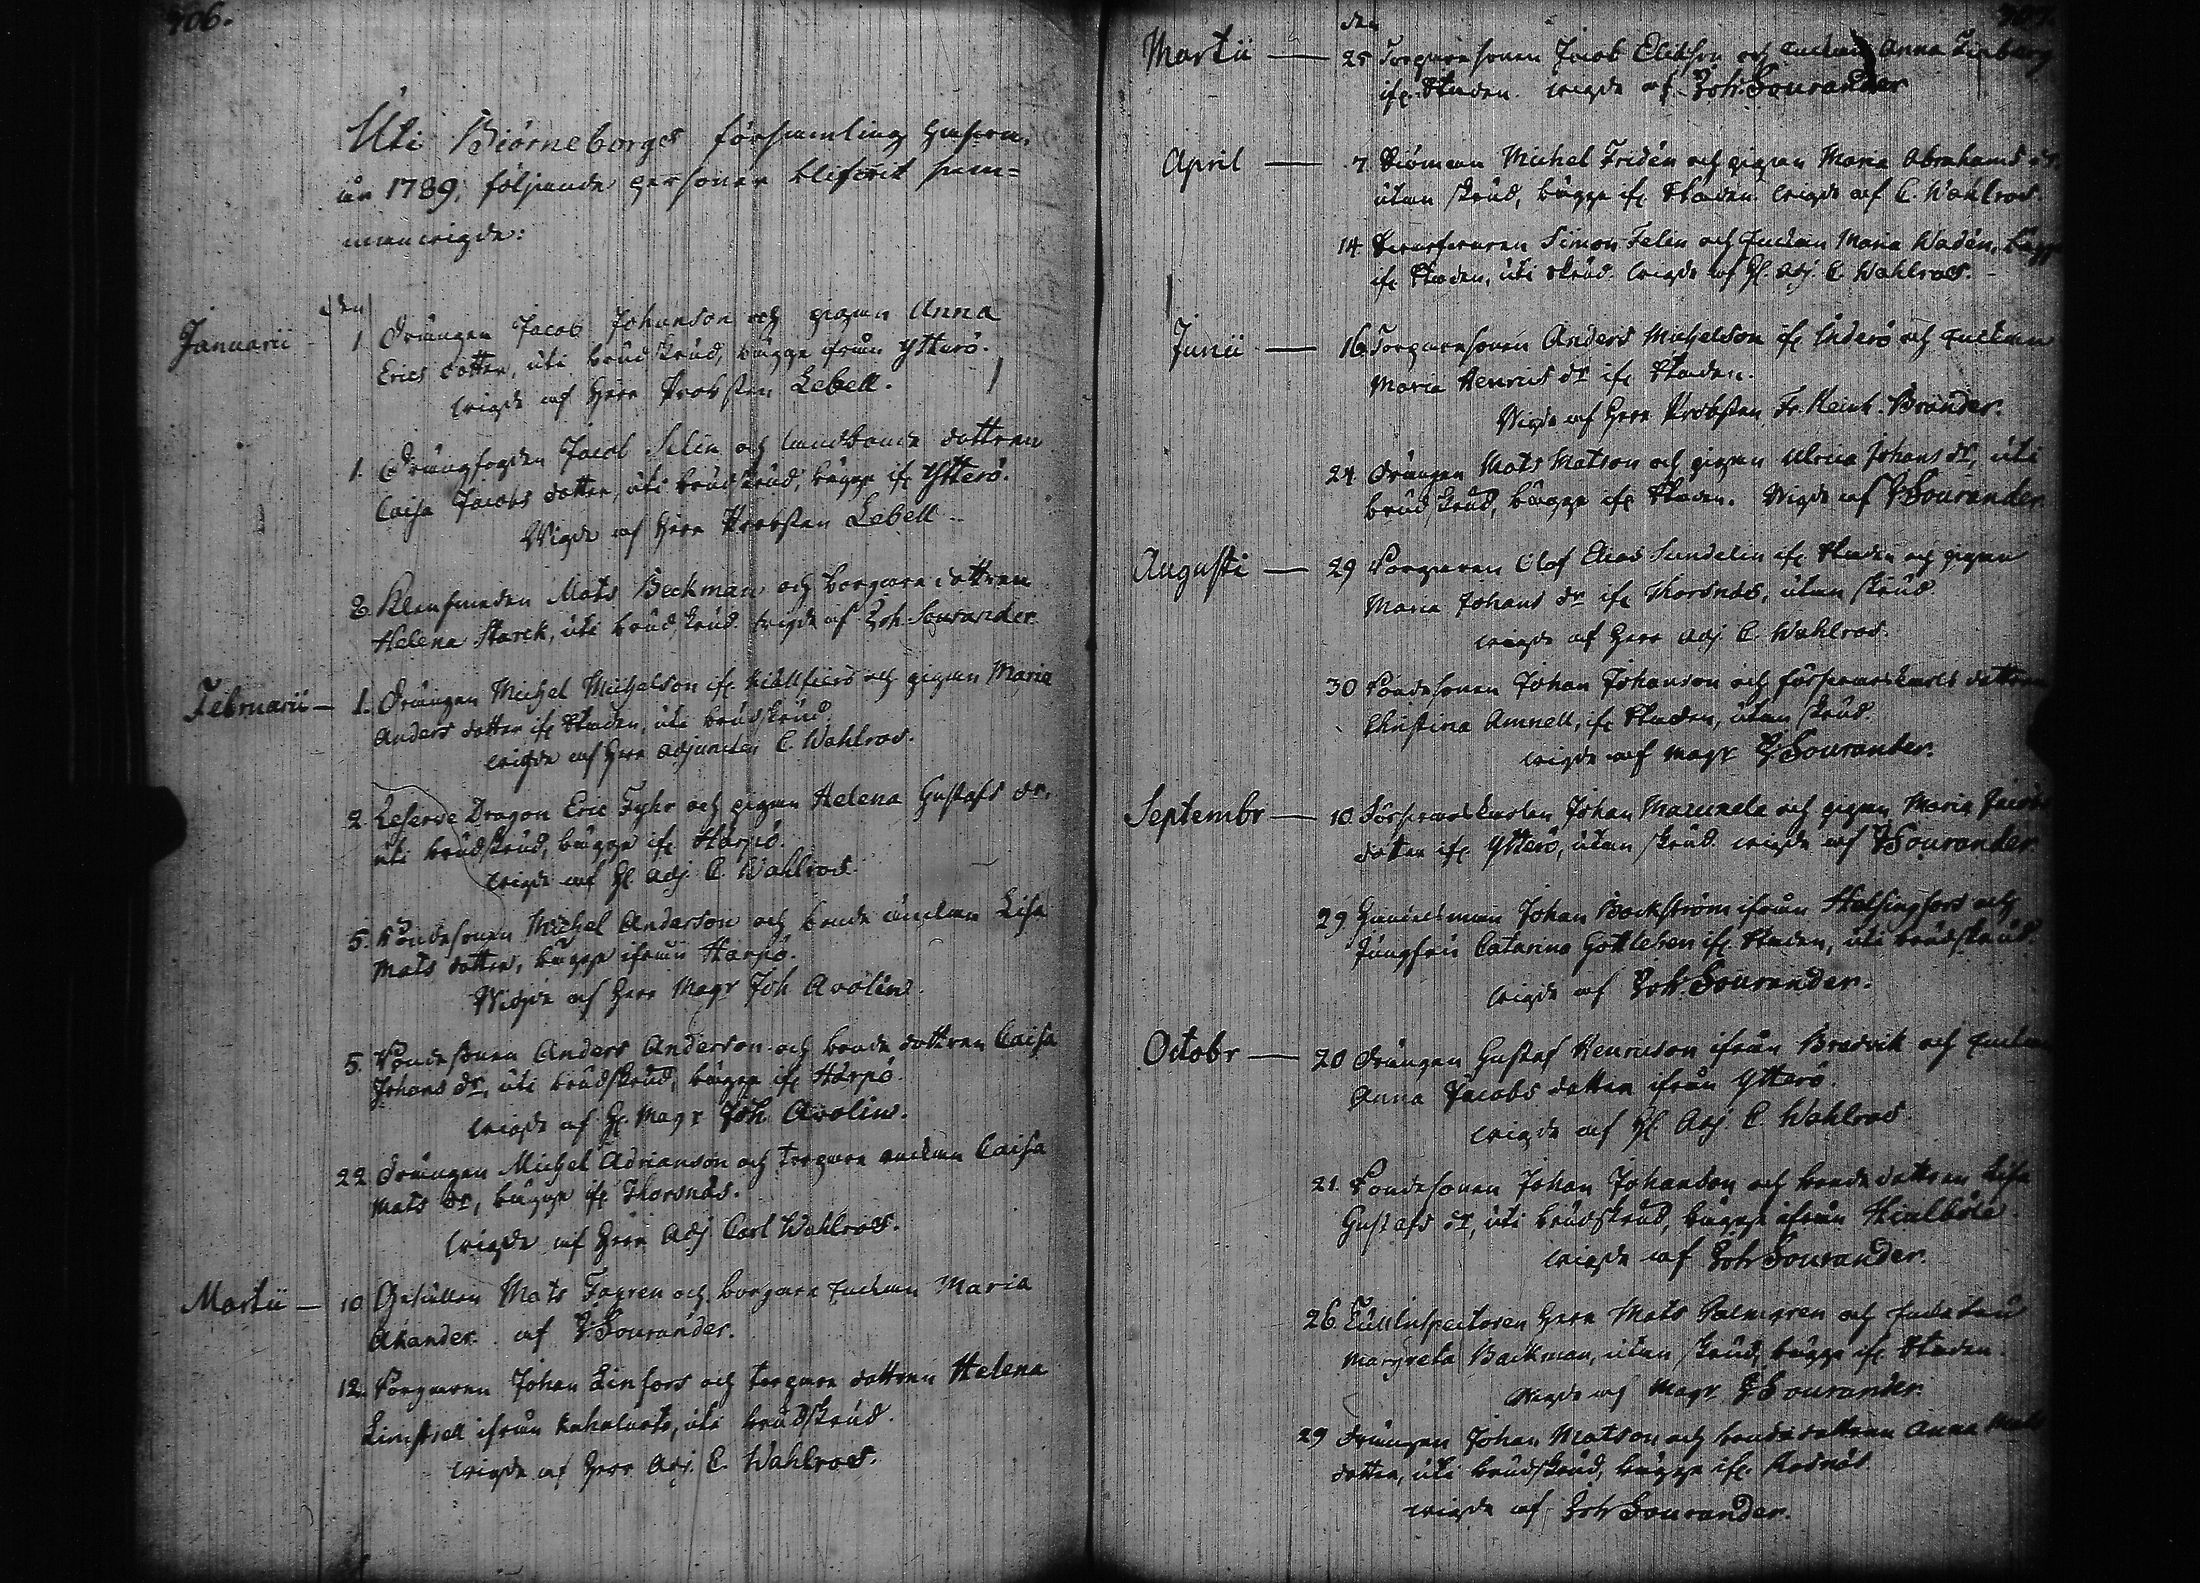 406.
Uti Biörneborgs församling hafva,
år 1789, följande personer blifvit sam=
manvigde:
den
Januarii 1 Drängen Jacob Johanson och pigan Anna
Erics dotter, uti brudskrud, bägge från Ytterö.
vigde af Herr Probsten Lebell.
1. Drängfogden Jacob Selin och landbonde dottren
Caisa Jacobs dotter, uti brudskrud, bägge ifr. Ytterö.
Vigde af Herr Probsten Lebell
2. Klensmeden Mats Beckman och borgare dottren
Helena Starck, uti brudskrud vigde af Joh. Sourander
Februarii — 1. Drängen Michel Michelson ifr. och pigan Maria
Anders dotter ifr. Staden, uti brudskrud.
vigde af Herr Adjuncten C. Wahlroos.
2 Reserve Dragon Eric Fyhr och pigan Helena Gustafs dr,
uti brudskrud, bägge ifr. Härpö.
vigde af H. Adj. C. Wahlroos.
5. Bondesonen Michel Anderson och bonde änckan Lisa
Mats dotter, bägge ifrån Härpö.
Vigde af Herr Magr Joh Avolin
5. Bondesonen Anders Anderson och bonde dottren Caisa
Johans dr, uti brudskrud, bägge ifr. Härpö.
vigde af H. Magr Joh. Avolin.
22 Drängen Michel Adrianson och torpare enckan Caisa
Mats dr, bägge ifr. Thorsnäs.
vigde af Herr Adj Carl Wahlroos.
Martii — 10 Gesällen Mats Fagren och borgare Enckan Maria
Akander. af J. Sourander.
12. Borgaren Johan Linfors och torpare dottren Helena
ifrån uti brudskrud.
vigde af Herr Adj. C. Wahlroos.
407.
den
Martii — 25 Torparesonen Jacob och Enckan Anna
ifr. Staden. vigde af Joh. Sourander
April — 7. Siöman Michel Fridén och pigan Maria Abrahams dr.
utan skrud, bägge ifr. Staden. vigde af C. Wahlroos.
14 Simon Felin och Enckan Maria Wadén, bägge
ifr. Staden, uti skrud. vigde af H. Adj. C. Wahlroos.
Junii — 16 Torparesonen Anders Michelson ifr. Inderö och Enckan
Maria Henrics dr ifr. Staden.
Vigde af Herr Probsten Fr. Reinh. Brander.
24 Drängen Mats Matson och pigan Ulrica Johans dr, uti
brudskrud, bägge ifr. Staden. Vigde af J Sourander
Augusti — 29 Borgaren Olof Elias Sundelin ifr. Staden och pigan
Maria Johans dr ifr. Thorsnäs, utan skrud
vigde af Herr Adj. C. Wahlroos.
30 Bondesonen Johan Johanson och försvarskarls dottren
Christina Amnell, ifr. Staden, utan skrud.
vigde af Magr J Sourander.
Septembr — 10. Försvarskarlen Johan och pigan Maria Jacobs
dotter ifr. Ytterö, utan skrud. vigde af J Sourander
29 Handelsman Johan Bockström ifrån Helsingfors och
Jungfru Catarina Gottleben ifr. Staden, uti brudskrud.
vigde af Joh. Sourander.
Octobr — 20 Drängen Gustaf Henricson ifrån Bredvik och Enckan
Anna Jacobs dotter ifrån Ytterö.
vigde af H. Adj. C. Wahlroos
21. Bondesonen Johan Johanson och bonde dottren Lisa
Gustafs dr, uti brudskrud, bägge ifrån Hvalböle.
vigde af Joh Sourander.
26 Tullinspectoren Herr Mats Palmgren och
Margreta Backman, utan skrud, bägge ifr. Staden.
vigde af Magr J Sourander.
29 Drängen Johan Matson och bondedottren Anna Mats
dotter, uti brudskrud, bägge ifr. Rosnäs
vigde af Joh Sourander.